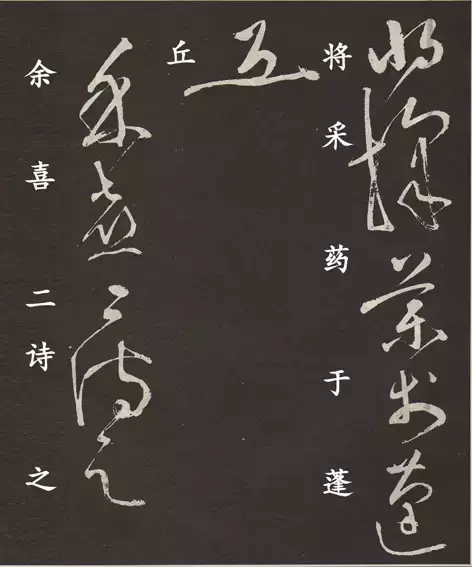 将采药于蓬
丘
余喜二诗之